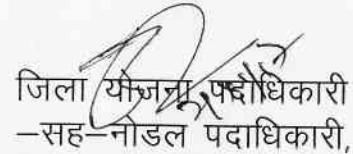 जिला योजना पदाधिकारी
–सह–नोडल पदाधिकारी,